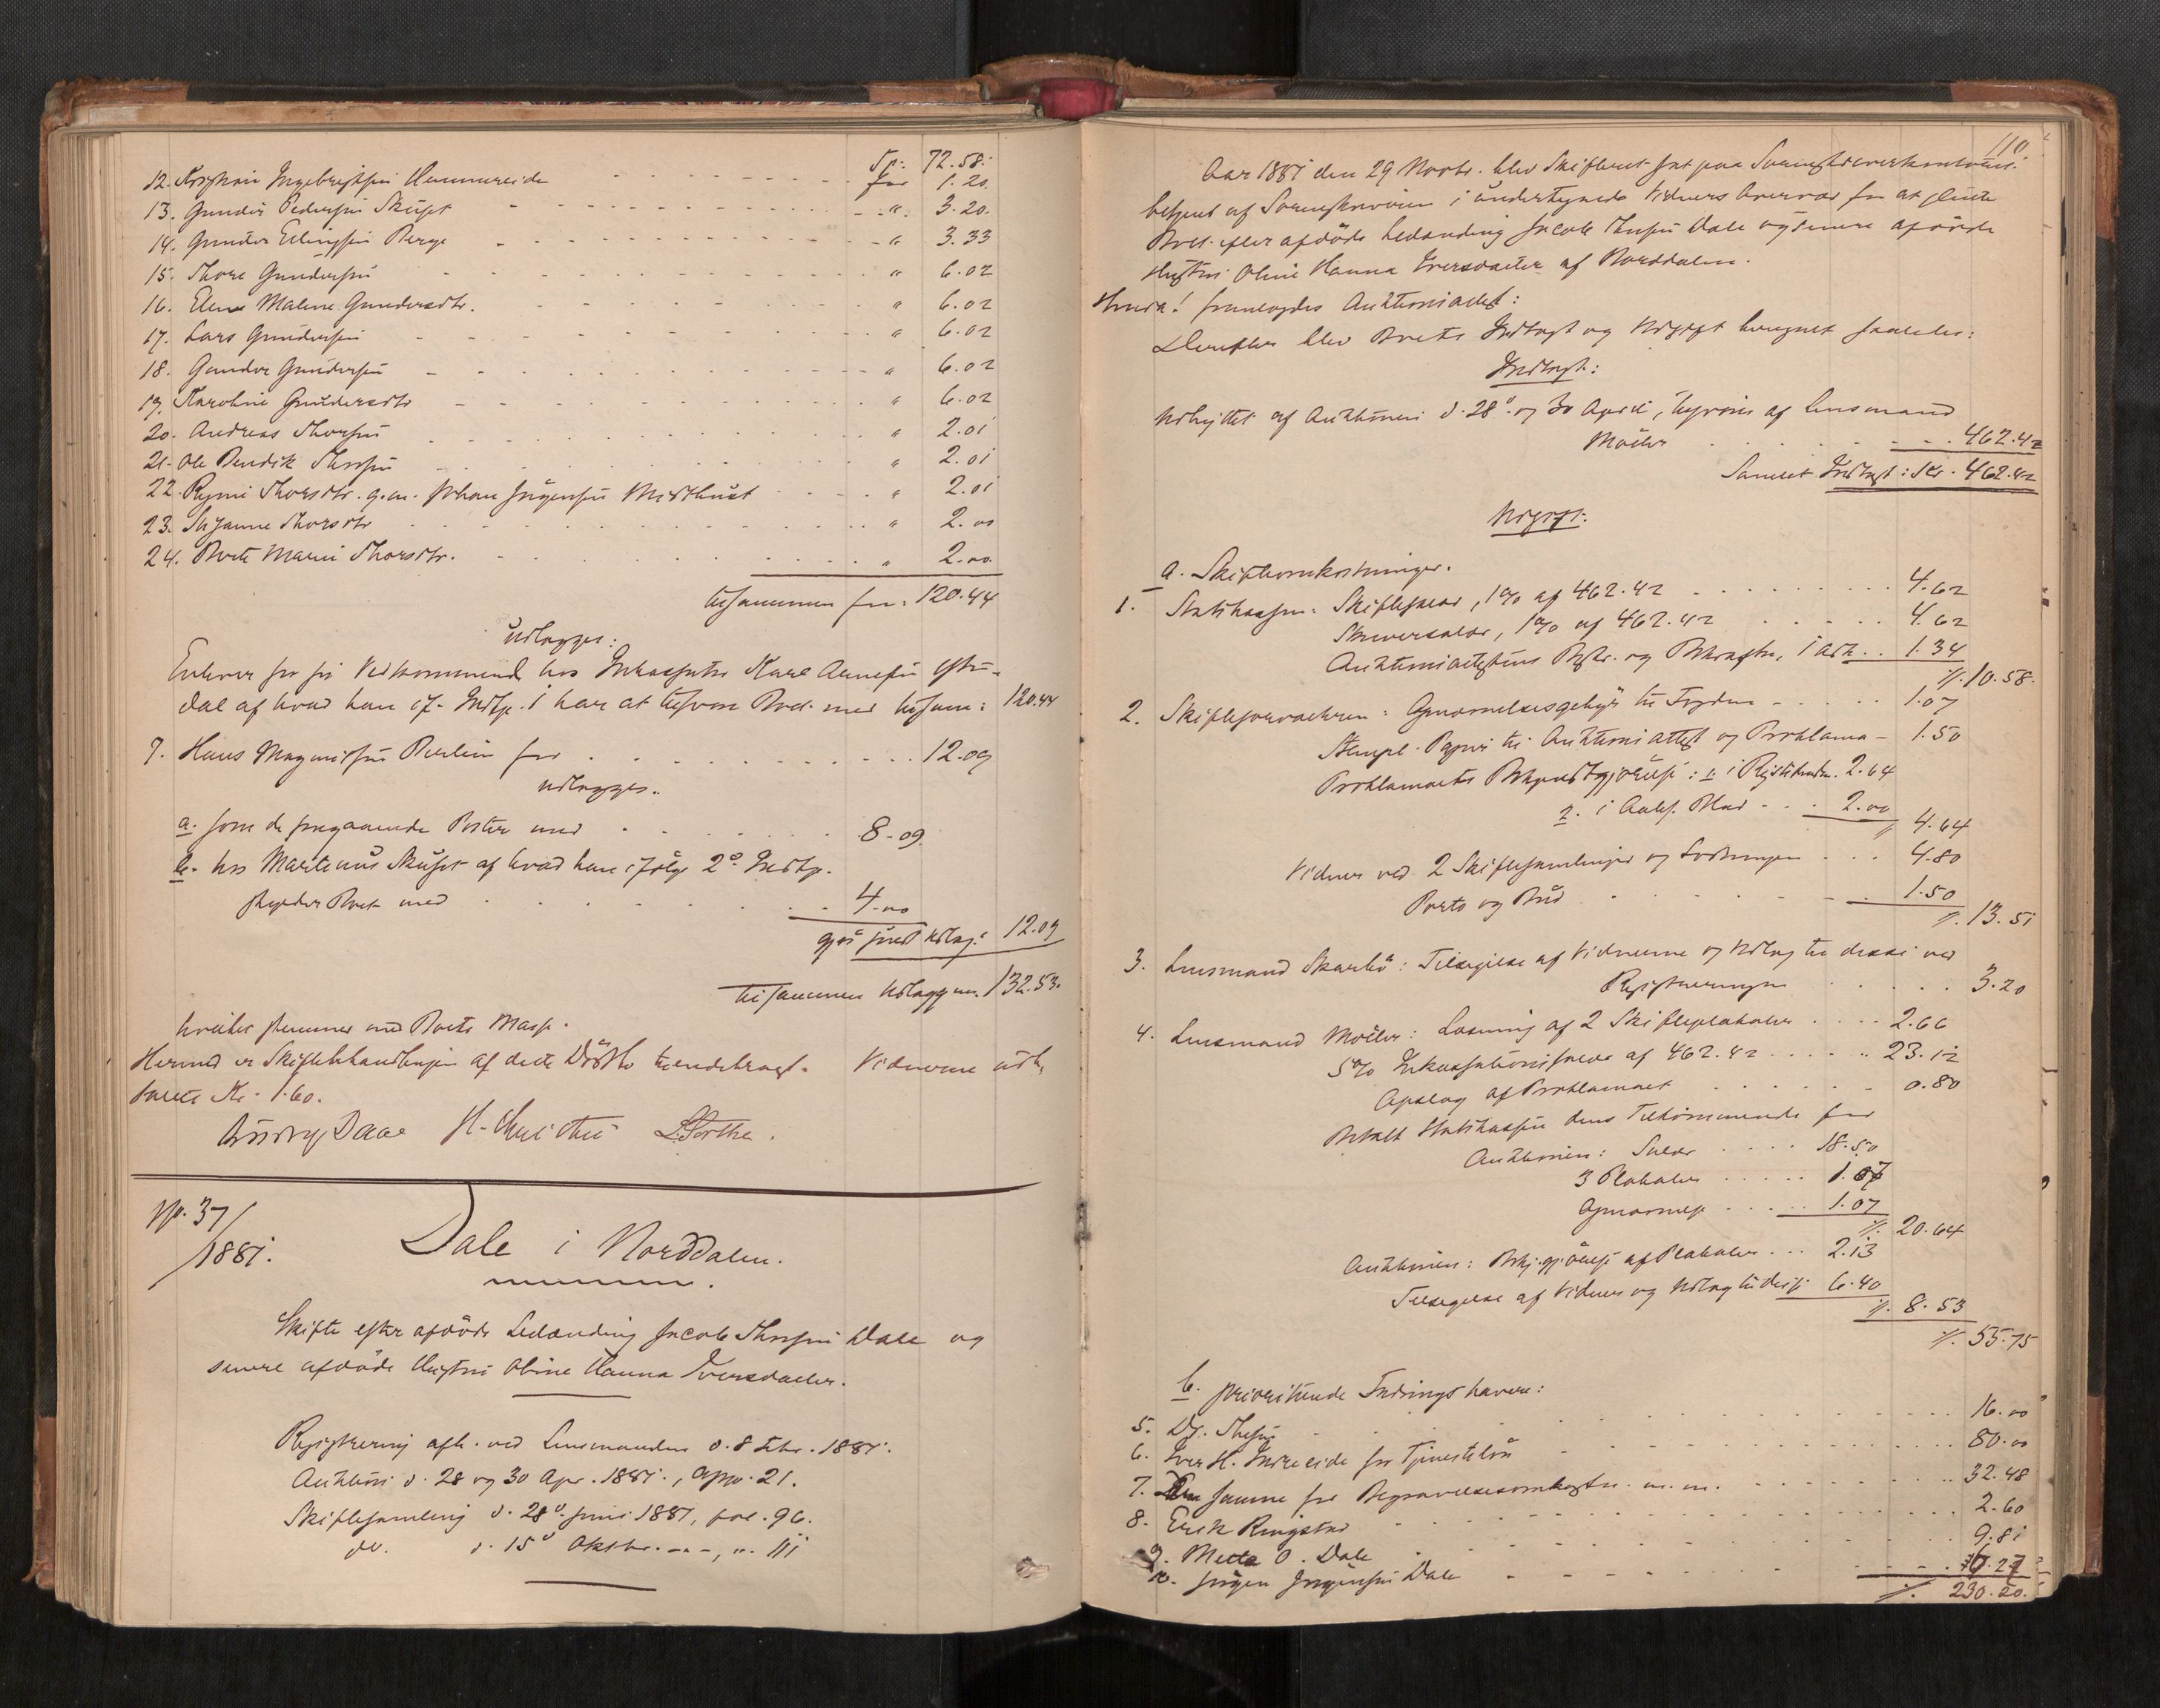 Tr: 72.58.
12. Kristian Ingebrigtsen Hammereide for 1.20.
13. Gunder Pedersen Skuset " 3.20.
14. Gunder Ellingsen Berge " 3.33
15. Thore Gundersen " 6.02
16. Elen Malene Gundersdtr. " 6.02
17. Lars Gundersen " 6.02
18. Gunder Gundersen " 6.02
19. Karoline Gundersdtr " 6.02
20. Andreas Thoresen " 2.01
21. Ole Bendik Thoresen " 2.01
22. Thorsdtr. g.m. Johan Jörgensen " 2.01
23. Susanne Thorsdtr " 2.00
24. Berte Marie Thorsdtr. " 2.00
tilsammen for: 120.44
udlægges:
Enhver for sit Vedkommende hos Karl Arnesen
dal af hvad han if. Indtp. 1 har at tilsvare Boet med tilsam: 120.44
9. Hans Magnussen for 12.09
udlægges.
a. som de foregaaende Poster med 8.09
b. hos Martinus Skuset af hvad han ifølge 2º Indtp.
skylder Boet med 4.00
gjør hans Udlæg: 12.09
tilsammen Udlæg Kr. 132.53.
hvilket stemmer med Boets Masse.
Hermed er Skiftebehandlingen af dette Dödsbo tilendebragt. Vidnerne
Kr. 1.60.
Daae H. L.
No. 37/
/1881.
Dale i Norddalen.
Skifte efter afdöde Ledænding Jacob Thoresen Dale og
senere afdöde Hustru Oline Hanna Iversdatter.
Registrering afh. ved Lensmanden d. 8 Febr. 1881.
Auktion d. 28 og 30 Apr. 1881., 21.
Skiftesamling d. 28º Juni 1881, fol. 96.
do. d. 15º Oktbr. - - , ". 111
110
Aar 1881 den 29 Novbr. blev Skifteret sat paa Sorenskriverkontoret.
betjent af Sorenskriveren i undertegnede Vidners Overvær for at slutte
Boet efter afdöde Ledænding Jacob Thoresen Dale og senere afdöde
Hustru Oline Hanna Iversdatter af Norddalen.
fremlagdes Auktionsattest:
Derefter blev Boets Indtægt og Udgift beregnet saaledes:
Indtægt:
Udbyttet af Auktionen d. 28º og 30 April, af Lensmand
Möller 462.42
Samlet Indtægt: Kr. 462.42
Udgift:
a. Skifteomkostninger.
1. Statskassen: Skiftesalær, 1% af 462.42 4.62
Skriversalær, 1% af 462.42 4.62
Auktionsattestens Beskr. og Bekræftn. 1 Ark 1.34
10.58.
2. Skifteforvalteren: Opnævnelsesgebyr til Fogden 1.07
Stempl. Papir til Auktionsattest og Proklama 1.50
Proklamaets Bekjendtgjörelse: 1. i Rigstidende 2.64
2. i Aales. Blad 2.00
4.64
Vidner ved 2 Skiftesamlinger og Slutningen 4.80
Porto og Bud 1.50
13.51
3. Lensmand Skarbö: Tilsigelse af Vidnerne og Udlæg til disse ved
Registreringen 3.20
4. Lensmand Möller: Læsning af 2 Skifteplakater 2.66
5% Inkassationssalær af 462.42 23.12
Opslag af Proklamaet 0.80
Betalt Statskassen dens Tilkommende for
Auktionen: Salær 18.50
3 Plakater 1.07
Opnævnelse 1.07
20.64
Auktionen: Bekj.gjörelse af Plakater 2.13
Tilsigelse af Vidner og Udlæg til disse 6.40
8.53
55.75
b. prioriterede Fordringshavere:
5. Dr. 16.00
6. Iver H. Indreeide for Tjenestelön 80.00
7. Den samme for Begravelsesomkostn. m. m. 32.48
8. Erik Ringstad 2.60
9. Mette O. Dale 9.81
10. Jörgen Jörgensen Dale 6.27
230.20.